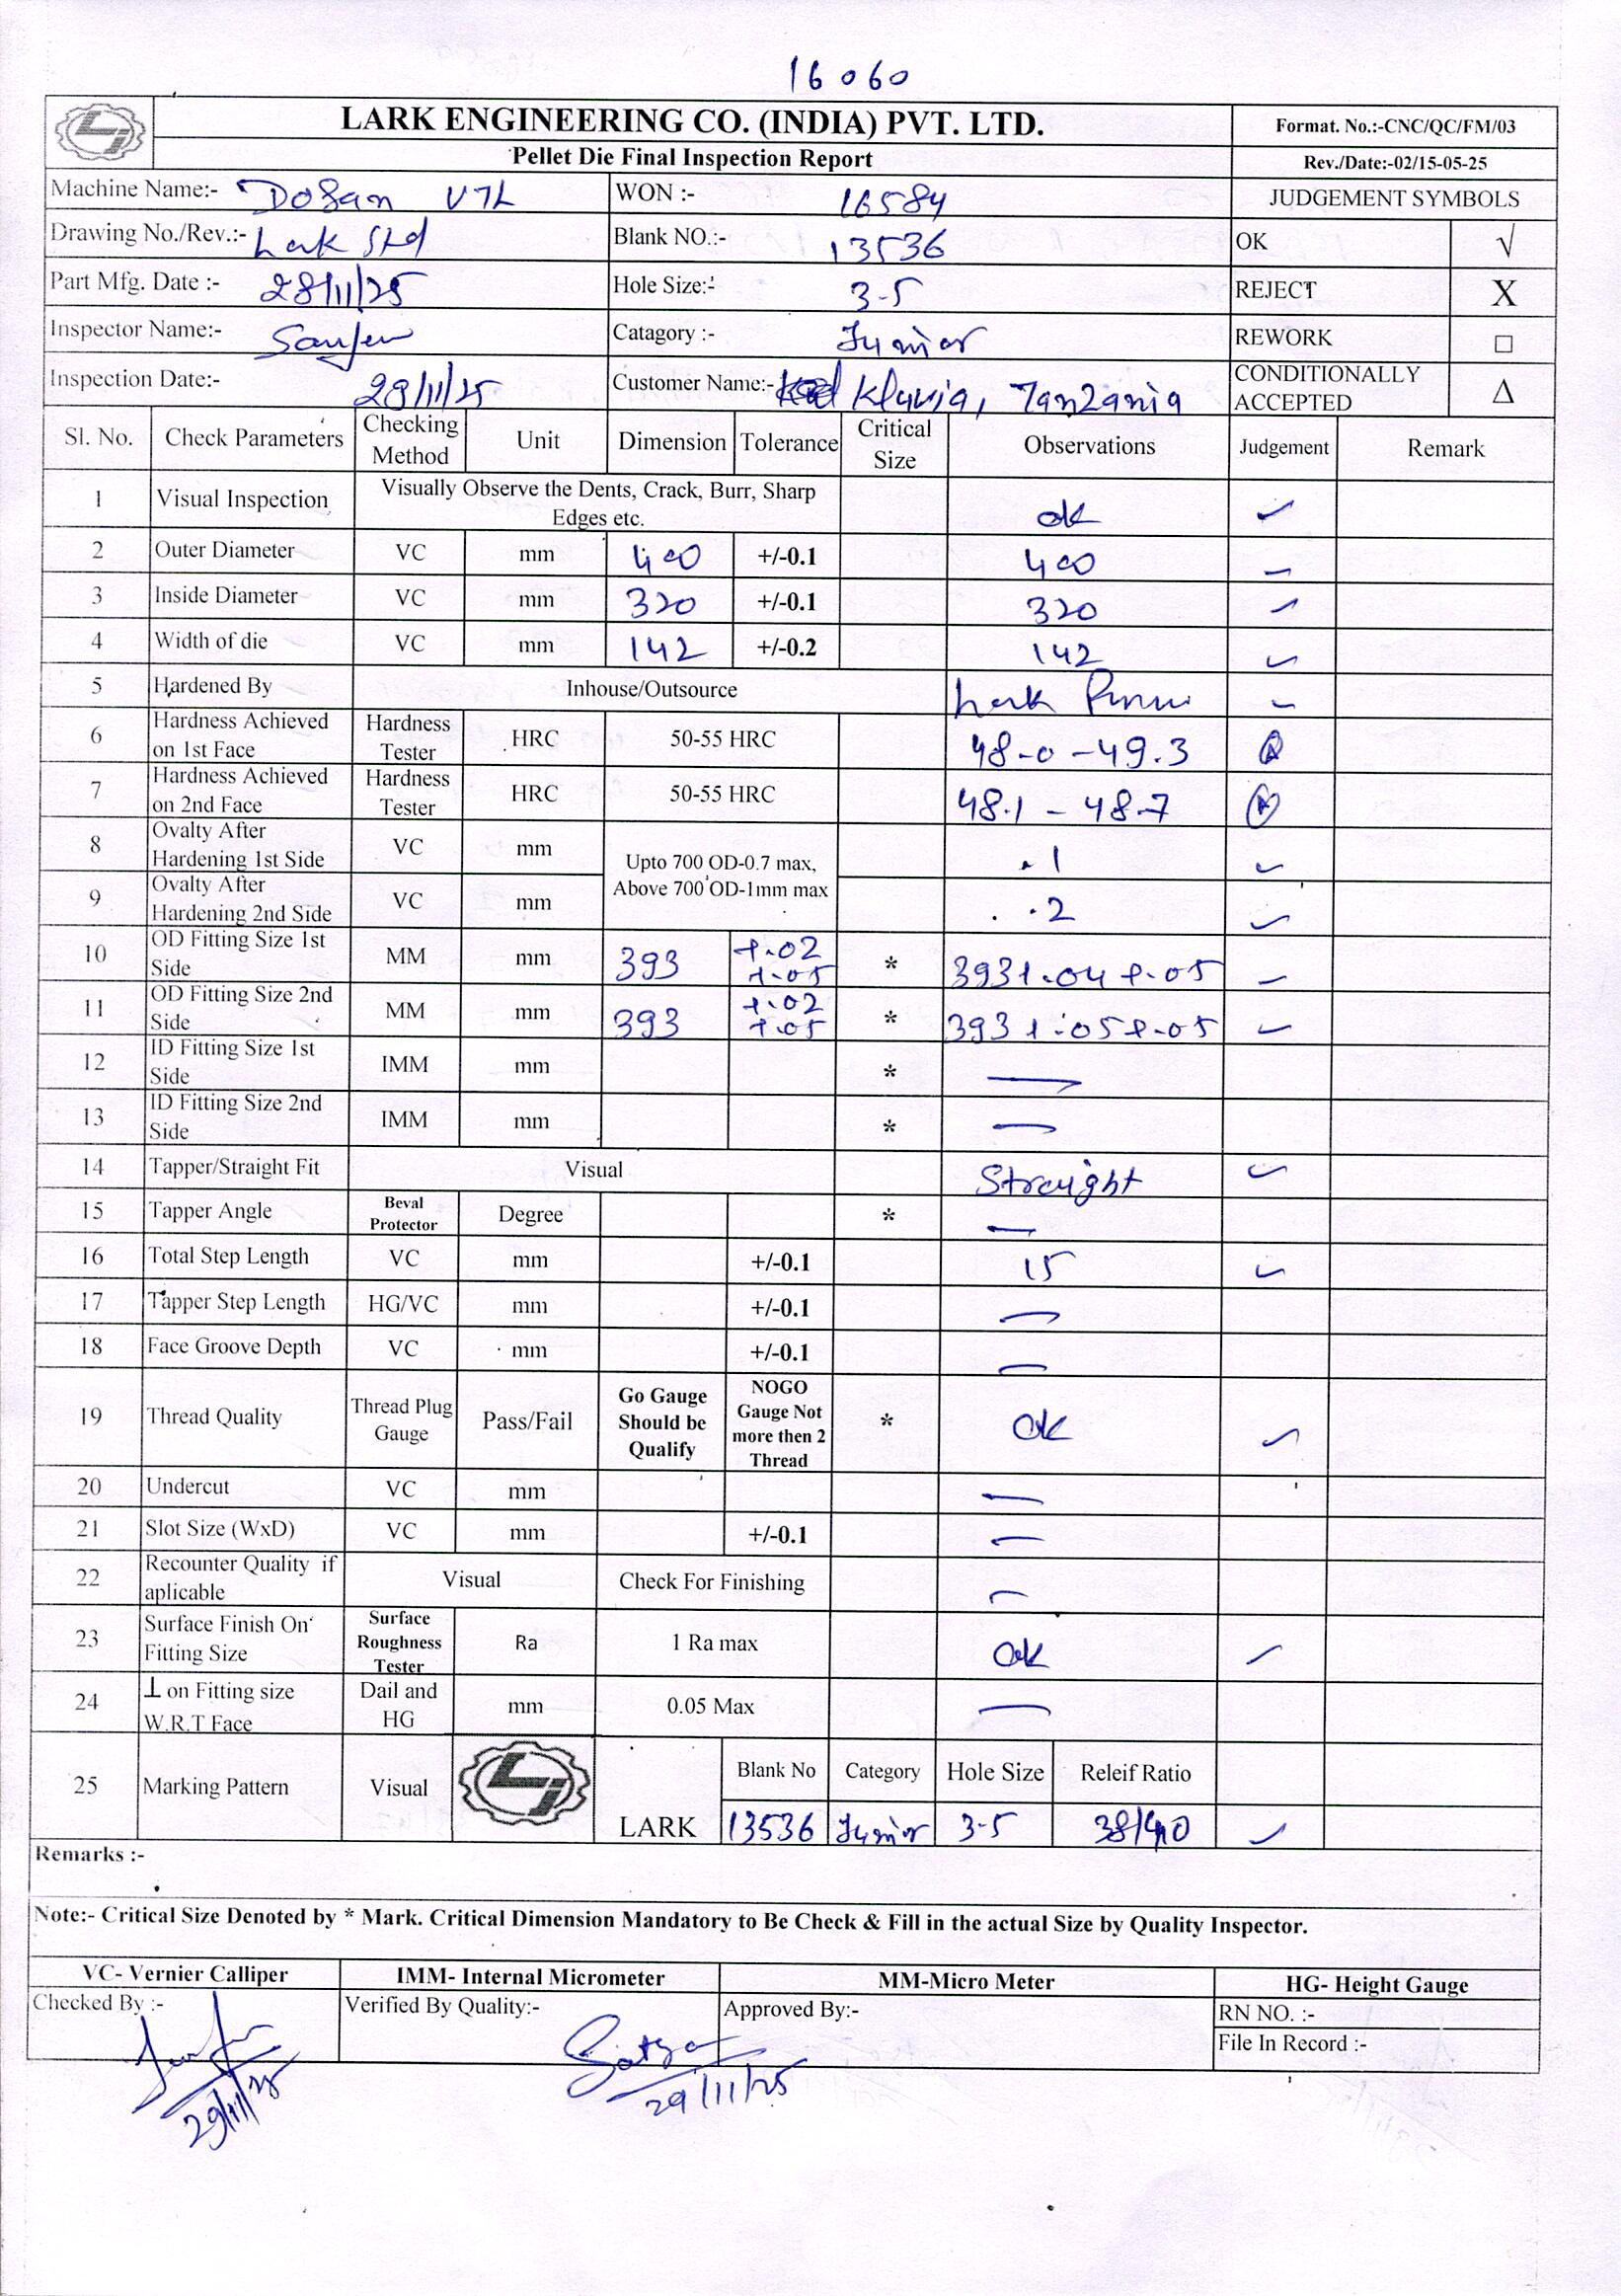 16060
LARK ENGINEERING CO. (INDIA) PVT. LTD.
Format. No.:-CNC/QC/FM/03
Pellet Die Final Inspection Report
Rev./Date:-02/15-05-25
Machine Name:- Dosan VTL WON :- 16584 JUDGEMENT SYMBOLS
Drawing No./Rev.:- Lark Std Blank NO.:- 13536 OK √
Part Mfg. Date :- 28/11/25 Hole Size:- 3-5 REJECT X
Inspector Name:- Sanjeev Catagory :- Junior REWORK □
Inspection Date:- 29/11/25 Customer Name:- Tanzania CONDITIONALLY ACCEPTED Δ
Sl. No. Check Parameters Checking Method Unit Dimension Tolerance Critical Size Observations Judgement Remark
1 Visual Inspection Visually Observe the Dents, Crack, Burr, Sharp Edges etc. ok ✓
2 Outer Diameter VC mm 400 +/-0.1 400 ✓
3 Inside Diameter VC mm 320 +/-0.1 320 ✓
4 Width of die VC mm 142 +/-0.2 142 ✓
5 Hardened By Inhouse/Outsource Lark ✓
6 Hardness Achieved on 1st Face Hardness Tester HRC 50-55 HRC 48-0 - 49.3
7 Hardness Achieved on 2nd Face Hardness Tester HRC 50-55 HRC 48.1 - 48.7
8 Ovalty After Hardening 1st Side VC mm Upto 700 OD-0.7 max, Above 700 OD-1mm max .1 ✓
9 Ovalty After Hardening 2nd Side VC mm .2 ✓
10 OD Fitting Size 1st Side MM mm 393 +.02 +.05 * 393+.04 +.05 ✓
11 OD Fitting Size 2nd Side MM mm 393 +.02 +.05 * 393+.05+.05 ✓
12 ID Fitting Size 1st Side IMM mm * —
13 ID Fitting Size 2nd Side IMM mm * —
14 Tapper/Straight Fit Visual Straight ✓
15 Tapper Angle Beval Protector Degree * —
16 Total Step Length VC mm +/-0.1 15 ✓
17 Tapper Step Length HG/VC mm +/-0.1 —
18 Face Groove Depth VC mm +/-0.1 —
19 Thread Quality Thread Plug Gauge Pass/Fail Go Gauge Should be Qualify NOGO Gauge Not more then 2 Thread * Ok ✓
20 Undercut VC mm —
21 Slot Size (WxD) VC mm +/-0.1 —
22 Recounter Quality if aplicable Visual Check For Finishing —
23 Surface Finish On Fitting Size Surface Roughness Tester Ra 1 Ra max Ok ✓
24 ⊥ on Fitting size W.R.T Face Dail and HG mm 0.05 Max —
25 Marking Pattern Visual LARK Blank No Category Hole Size Releif Ratio
13536 Junior 3-5 38/40 ✓
Remarks :-
Note:- Critical Size Denoted by * Mark. Critical Dimension Mandatory to Be Check & Fill in the actual Size by Quality Inspector.
VC- Vernier Calliper IMM- Internal Micrometer MM-Micro Meter HG- Height Gauge
Checked By :- Verified By Quality:- Approved By:- RN NO. :-
File In Record :-
Satya
29/11/25 29/11/25